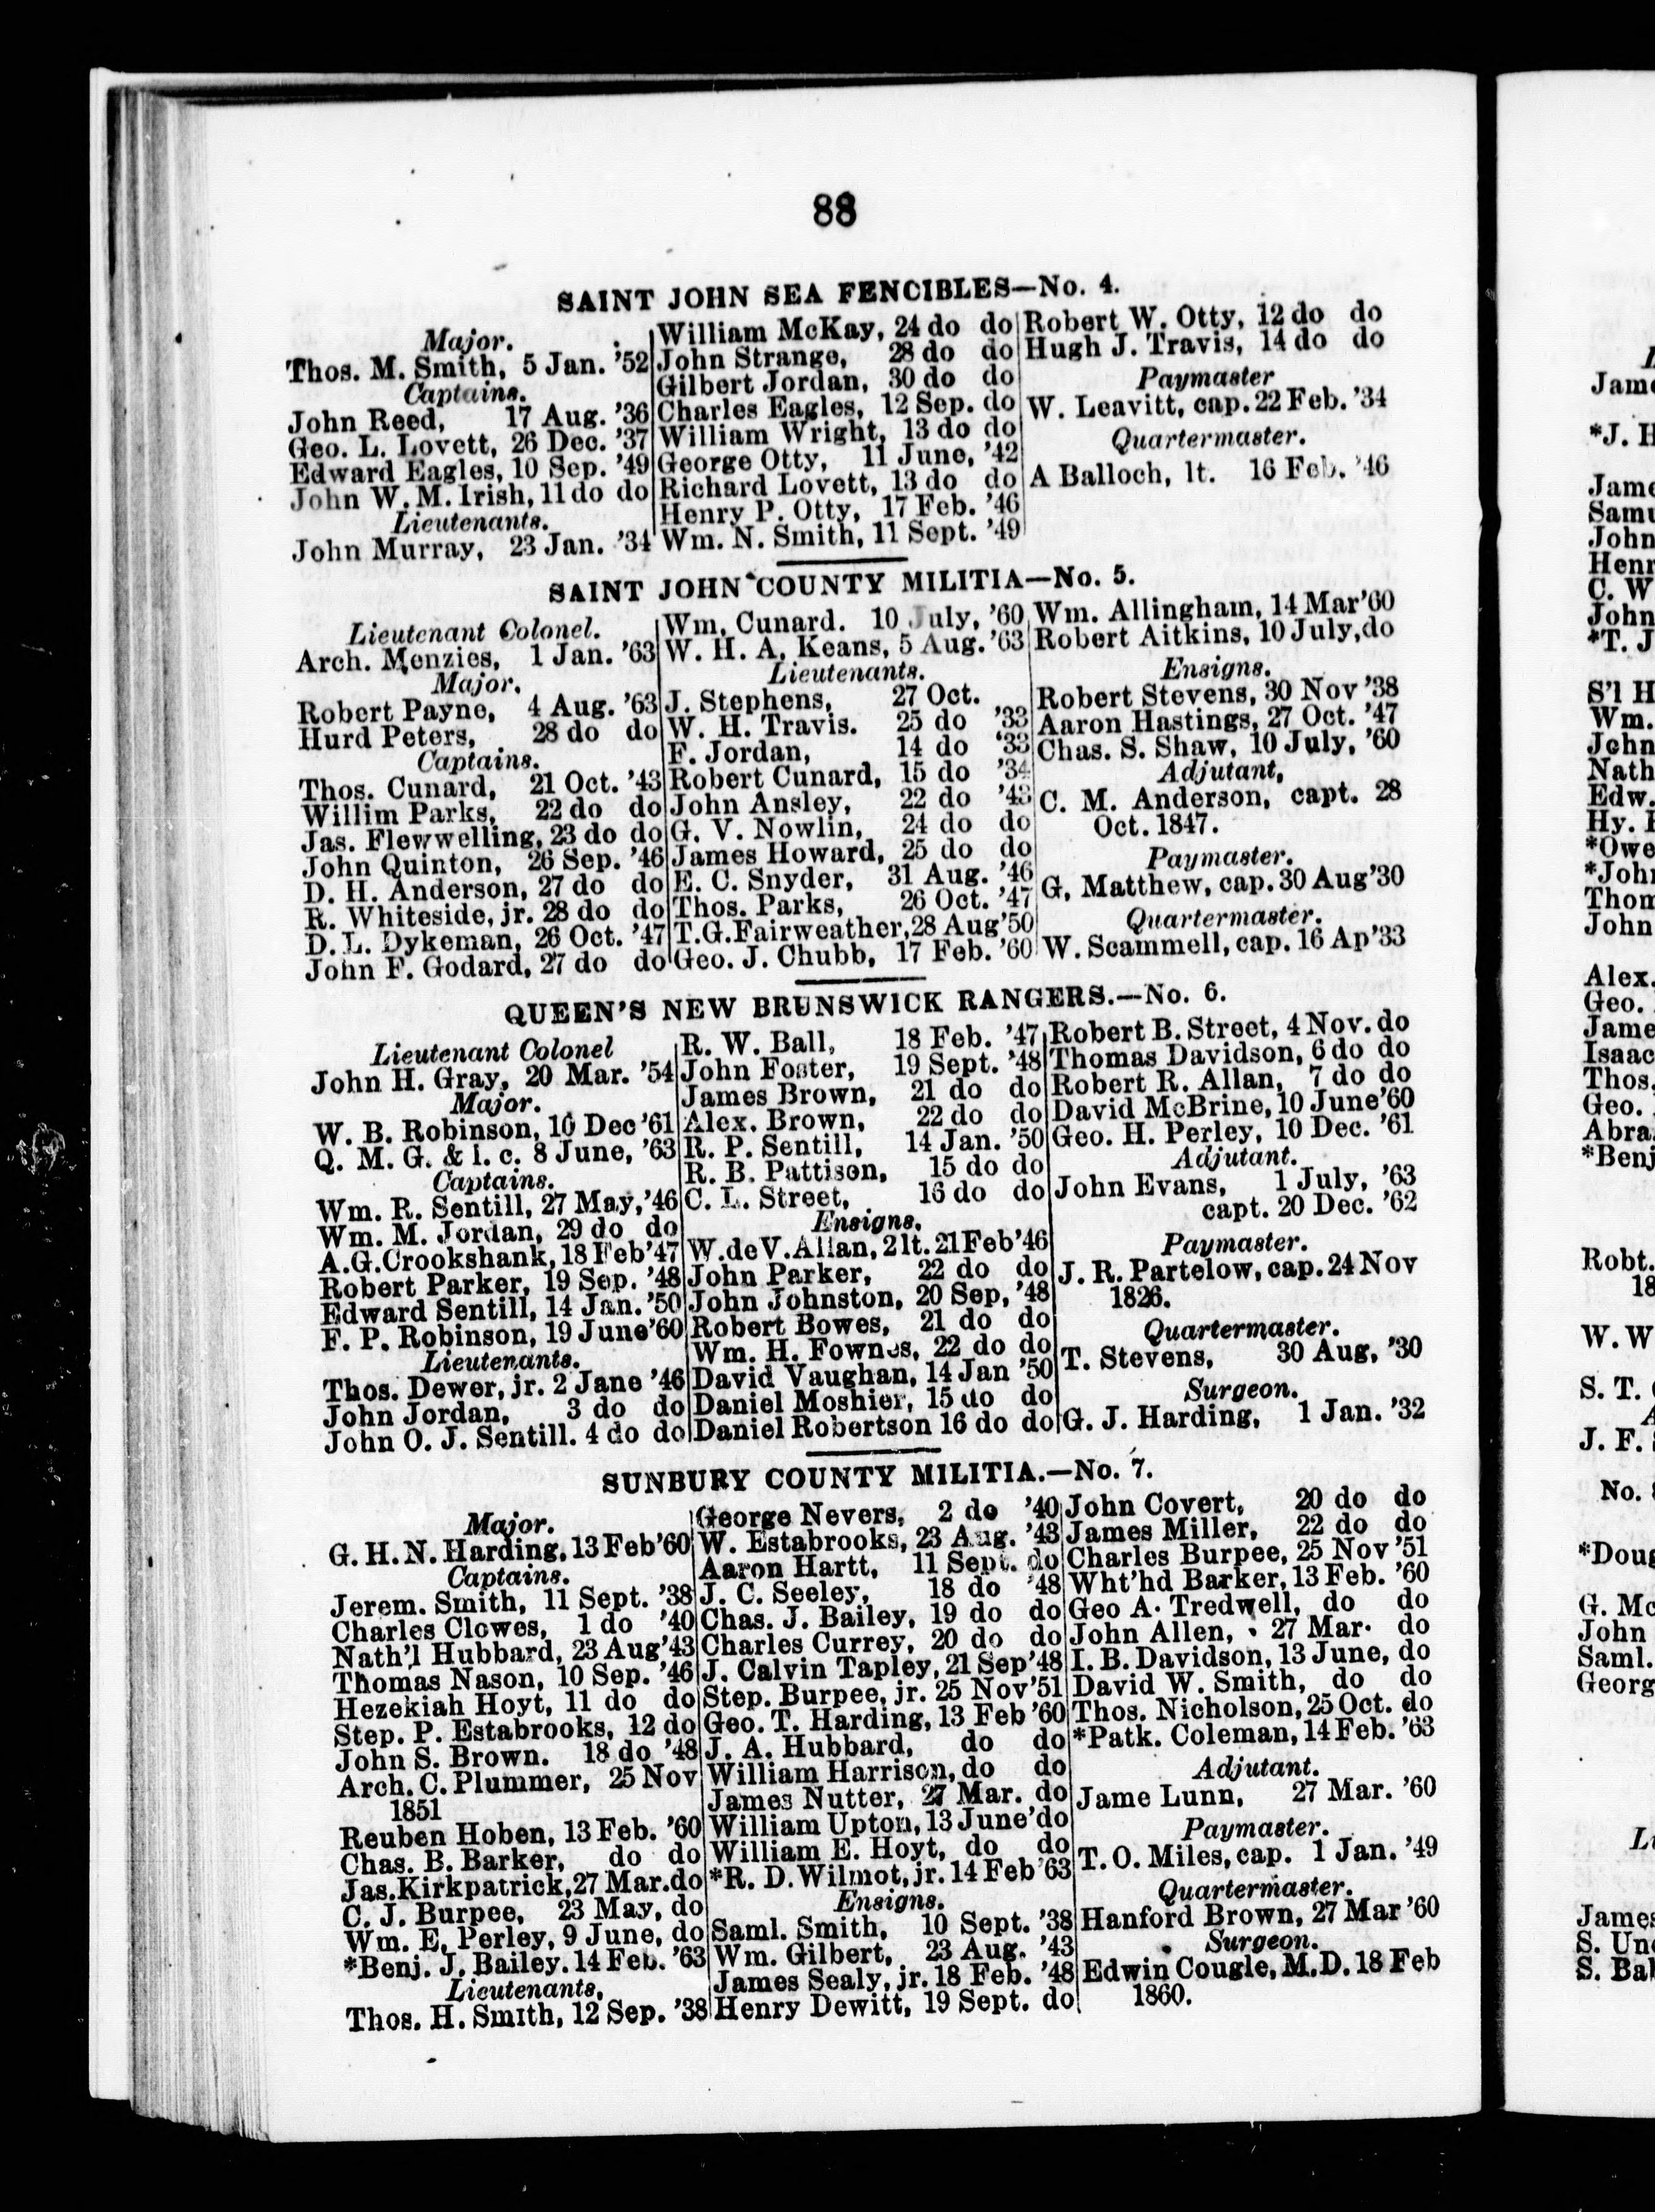 88
SAINT JOHN SEA FENCIBLES—No. 4.
Major.
Thos. M. Smith, 5 Jan. '52
Captains.
John Reed, 17 Aug. '36
Geo. L. Lovett, 26 Dec. '37
Edward Eagles, 10 Sep. '49
John W. M. Irish, 11 do do
Lieutenants.
John Murray, 23 Jan. '34
William McKay, 24 do do
John Strange, 28 do do
Gilbert Jordan, 30 do do
Charles Eagles, 12 Sep. do
William Wright, 13 do do
George Otty, 11 June, '42
Richard Lovett, 13 do do
Henry P. Otty, 17 Feb. '46
Wm. N. Smith, 11 Sept. '49
Robert W. Otty, 12 do do
Hugh J. Travis, 14 do do
Paymaster
W. Leavitt, cap. 22 Feb. '34
Quartermaster.
A Balloch, lt. 16 Feb. '46
SAINT JOHN COUNTY MILITIA—No. 5.
Lieutenant Colonel.
Arch. Menzies, 1 Jan. '63
Major.
Robert Payne, 4 Aug. '63
Hurd Peters, 28 do do
Captains.
Thos. Cunard, 21 Oct. '43
Willim Parks, 22 do do
Jas. Flewwelling, 23 do do
John Quinton, 26 Sep. '46
D. H. Anderson, 27 do do
R. Whiteside, jr. 28 do do
D. L. Dykeman, 26 Oct. '47
John F. Godard, 27 do do
Wm. Cunard. 10 July, '60
W. H. A. Keans, 5 Aug. '63
Lieutenants.
J. Stephens, 27 Oct.
W. H. Travis. 25 do '33
F. Jordan, 14 do '33
Robert Cunard, 15 do '34
John Ansley, 22 do '43
G. V. Nowlin, 24 do do
James Howard, 25 do do
E. C. Snyder, 31 Aug. '46
Thos. Parks, 26 Oct. '47
T.G.Fairweather,28 Aug'50
Geo. J. Chubb, 17 Feb. '60
Wm. Allingham, 14 Mar'60
Robert Aitkins, 10 July,do
Ensigns.
Robert Stevens, 30 Nov '38
Aaron Hastings, 27 Oct. '47
Chas. S. Shaw, 10 July, '60
Adjutant,
C. M. Anderson, capt. 28
Oct. 1847.
Paymaster.
G, Matthew, cap. 30 Aug'30
Quartermaster.
W. Scammell, cap. 16 Ap'33
QUEEN'S NEW BRUNSWICK RANGERS.—No. 6.
Lieutenant Colonel
John H. Gray, 20 Mar. '54
Major.
W. B. Robinson, 10 Dec '61
Q. M. G. & I. c. 8 June, '63
Captains.
Wm. R. Sentill, 27 May,'46
Wm. M. Jordan, 29 do do
A.G.Crookshank, 18 Feb'47
Robert Parker, 19 Sep. '48
Edward Sentill, 14 Jan. '50
F. P. Robinson, 19 June'60
Lieutenants.
Thos. Dewer, jr. 2 Jane '46
John Jordan, 3 do do
John O. J. Sentill. 4 do do
R. W. Ball, 18 Feb. '47
John Foster, 19 Sept. '48
James Brown, 21 do do
Alex. Brown, 22 do do
R. P. Sentill, 14 Jan. '50
R. B. Pattison, 15 do do
C. L. Street, 16 do do
Ensigns.
W.deV.Allan, 2lt. 21Feb'46
John Parker, 22 do do
John Johnston, 20 Sep, '48
Robert Bowes, 21 do do
Wm. H. Fownes, 22 do do
David Vaughan, 14 Jan '50
Daniel Moshier, 15 do do
Daniel Robertson 16 do do
Robert B. Street, 4 Nov. do
Thomas Davidson, 6 do do
Robert R. Allan, 7 do do
David McBrine, 10 June'60
Geo. H. Perley, 10 Dec. '61
Adjutant.
John Evans, 1 July, '63
capt. 20 Dec. '62
Paymaster.
J. R. Partelow, cap. 24 Nov
1826.
Quartermaster.
T. Stevens, 30 Aug, '30
Surgeon.
G. J. Harding, 1 Jan. '32
SUNBURY COUNTY MILITIA.—No. 7.
Major.
G. H. N. Harding, 13 Feb'60
Captains.
Jerem. Smith, 11 Sept. '38
Charles Clowes, 1 do '40
Nath'l Hubbard, 23 Aug'43
Thomas Nason, 10 Sep. '46
Hezekiah Hoyt, 11 do do
Step. P. Estabrooks, 12 do
John S. Brown. 18 do '48
Arch. C. Plummer, 25 Nov
1851
Reuben Hoben, 13 Feb. '60
Chas. B. Barker, do do
Jas.Kirkpatrick,27 Mar.do
C. J. Burpee, 23 May, do
Wm. E, Perley, 9 June, do
*Benj. J. Bailey. 14 Feb. '63
Lieutenants,
Thos. H. Smith, 12 Sep. '38
George Nevers, 2 do '40
W. Estabrooks, 23 Aug. '43
Aaron Hartt, 11 Sept. do
J. C. Seeley, 18 do '48
Chas. J. Bailey, 19 do do
Charles Currey, 20 do do
J. Calvin Tapley, 21 Sep'48
Step. Burpee, jr. 25 Nov'51
Geo. T. Harding, 13 Feb '60
J. A. Hubbard, do do
William Harrison, do do
James Nutter, 27 Mar. do
William Upton, 13 June'do
William E. Hoyt, do do
*R. D. Wilmot, jr. 14 Feb'63
Ensigns.
Saml. Smith, 10 Sept. '38
Wm. Gilbert, 23 Aug. '43
James Sealy, jr. 18 Feb. '48
Henry Dewitt, 19 Sept. do
John Covert, 20 do do
James Miller, 22 do do
Charles Burpee, 25 Nov '51
Wht'hd Barker, 13 Feb. '60
Geo A. Tredwell, do do
John Allen, 27 Mar. do
I. B. Davidson, 13 June, do
David W. Smith, do do
Thos. Nicholson, 25 Oct. do
*Patk. Coleman, 14 Feb. '63
Adjutant.
Jame Lunn, 27 Mar. '60
Paymaster.
T. O. Miles, cap. 1 Jan. '49
Quartermaster.
Hanford Brown, 27 Mar '60
Surgeon.
Edwin Cougle, M.D. 18 Feb
1860.
*J. H
John
Henr
C. W
John
*T. J
S'l H
Wm.
John
Nath
Edw.
Hy.
*Owe
*John
Thom
John
Alex.
Geo.
Jame
Isaac
Thos.
Geo.
Abra
*Benj
Robt.
18
W. W
S. T.
J. F.
No.
*Doug
G. Mc
John
Saml.
Georg
James
S. Un
S. Bal